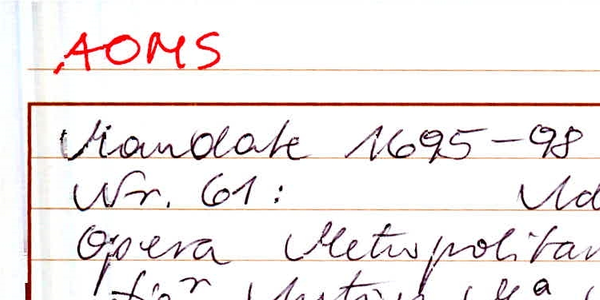 AOMS
Mandate 1695-98
Nr. 61: Ud
Opera Metropolitan
für